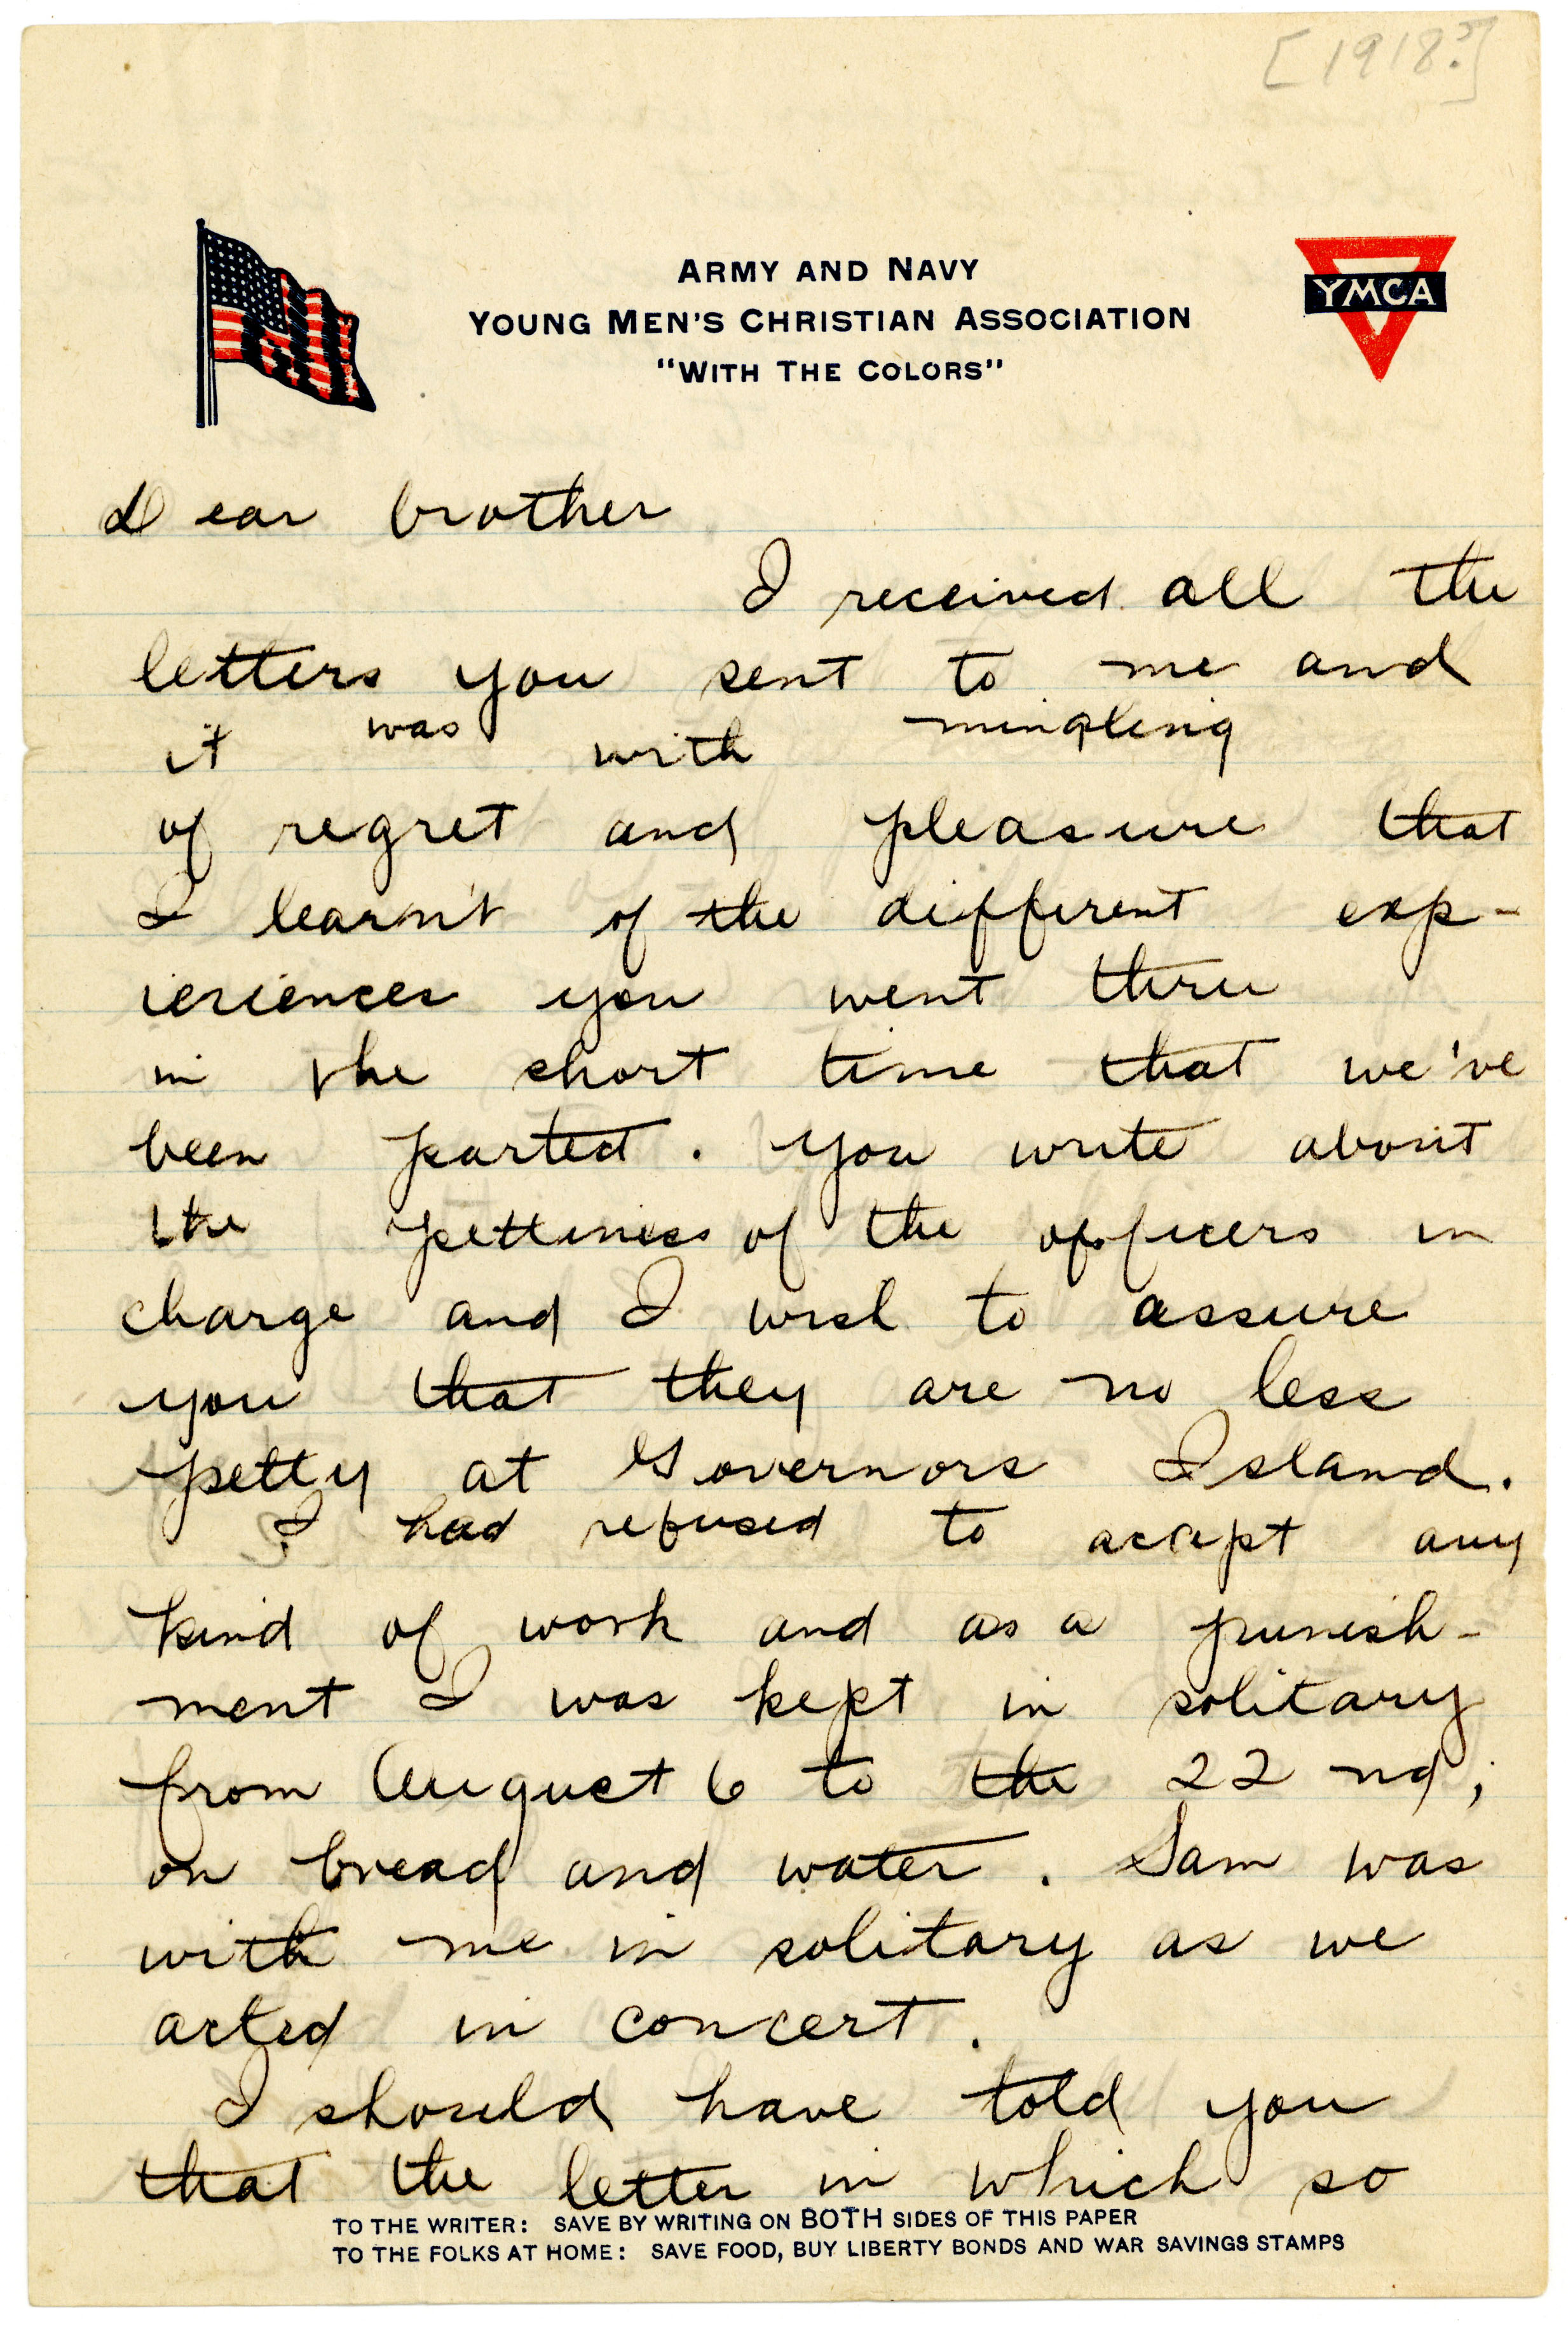 [1918?]
ARMY AND NAVY
YOUNG MEN'S CHRISTIAN ASSOCIATION
"WITH THE COLORS"
YMCA
Dear brother
I received all the
letters you sent to me and
it was with mingling
of regret and pleasure that
I learn't of the different exp-
ieriences you went thru
in the short time that we've
been parted. You write about
the pettiness of the officers in
charge and I wish to assure
you that they are no less
petty at Governors Island.
I had refused to accept any
kind of work and as a punish-
ment I was kept in solitary
from August 6 to the 22nd;
on bread and water. Sam was
with me in solitary as we
acted in concert.
I should have told you
that the letter in which so
TO THE WRITER: SAVE BY WRITING ON BOTH SIDES OF THIS PAPER
TO THE FOLKS AT HOME: SAVE FOOD, BUY LIBERTY BONDS AND WAR SAVINGS STAMPS